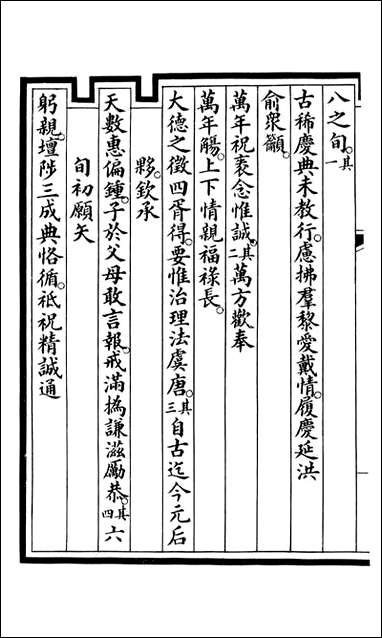 八之旬其一
古稀慶典未教行慮拂羣黎愛戴情履慶延洪
俞衆籲
萬年祝衮念惟誠其二萬方歡奉
萬年觴上下情親福祿長
大德之徵四胥得要惟治理法虞唐其三自古迄今元后
夥欽承
天數惠偏鍾子於父母敢言報戒滿撝謙滋勵恭其四六
旬初願矢
躬親壇陟三成典恪循祗祝精誠通